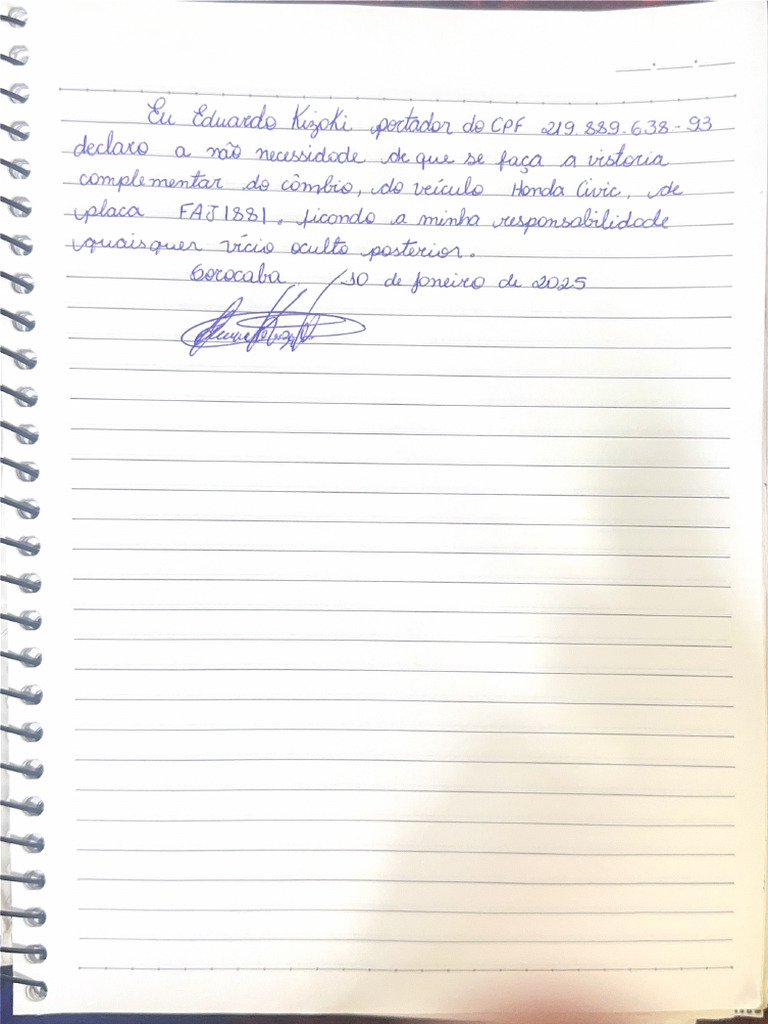 Eu Eduardo Kizoki portador do CPF 219.889.638-93
declaro a não necessidade de que se faça a vistoria
complementar do câmbio, do veículo Honda Civic, de
placa FAJ1881, ficando a minha responsabilidade
quaisquer vício oculto posterior.
Sorocaba, 10 de janeiro de 2025